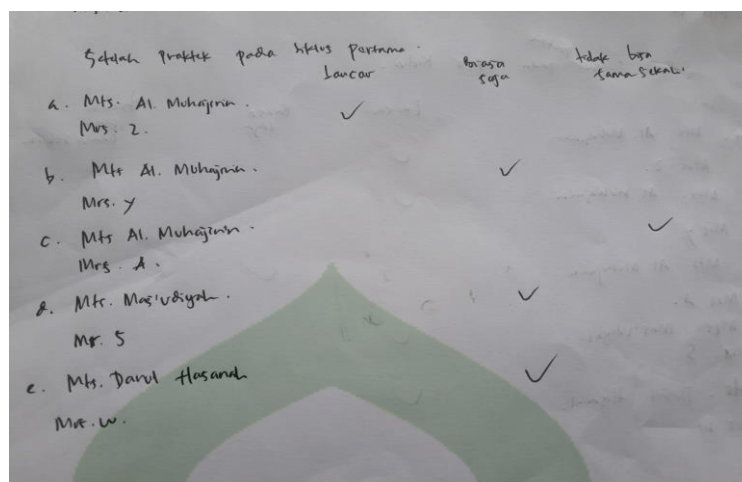 Setelah praktek pada siklus pertama.
Lancar Biasa saja tidak bisa sama sekali.
a. Mts. Al. Muhajirin. ✓
Mrs. Z.
b. Mts Al. Muhajirin. ✓
Mrs. Y
c. Mts Al. Muhajirin. ✓
Mrs. A.
d. Mts. Mas'udiyah. ✓
Mr. S
e. Mts. Darul Hasanah ✓
Mrs. W.